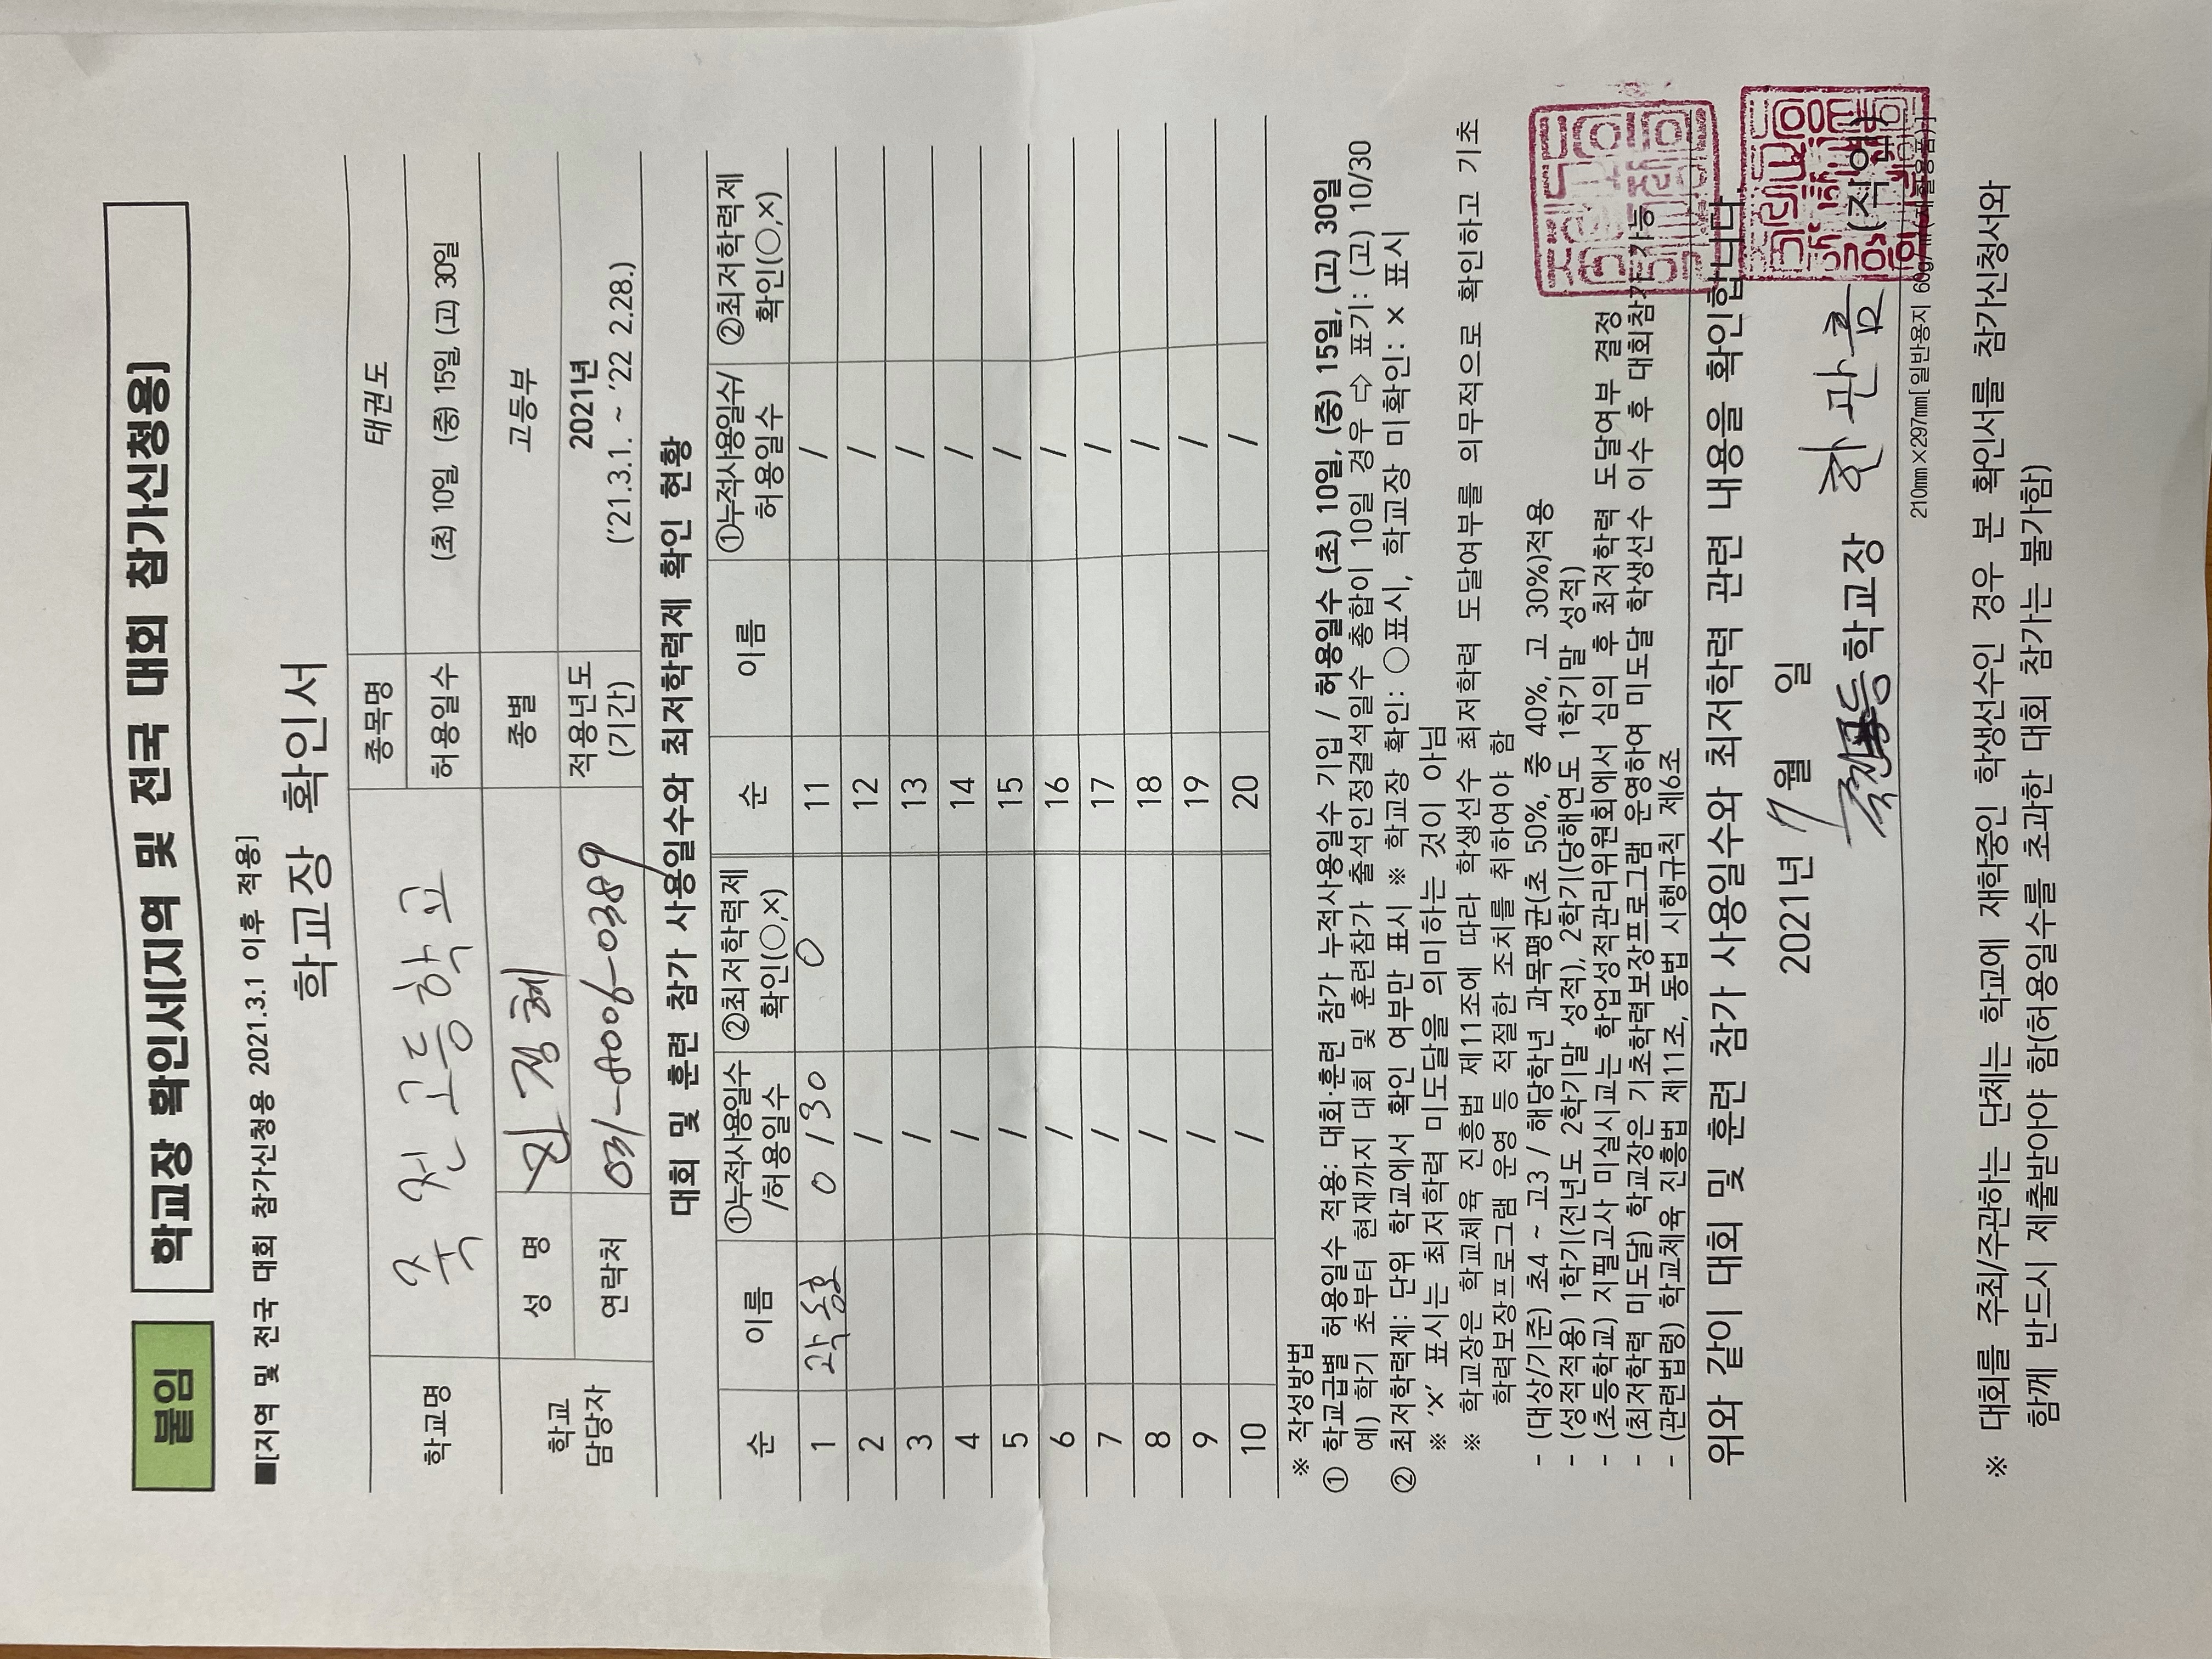 붙임 학교장 확인서(지역 및 전국 대회 참가신청용)
■[지역 및 전국 대회 참가신청용 2021.3.1 이후 적용]
학교장 확인서
학교명 죽전고등학교 종목명 태권도
허용일수 (초) 10일, (중) 15일, (고) 30일
학교 담당자 성 명 종별 고등부
연락처 031-8006-0389 적용년도 (기간) 2021년 ('21.3.1. ~ '22 2.28.)
대회 및 훈련 참가 사용일수와 최저학력제 확인 현황
순 이름 ①누적사용일수/허용일수 ②최저학력제 확인(○,×) 순 이름 ①누적사용일수/허용일수 ②최저학력제 확인(○,×)
1 0 / 30 0 11 /
2 / 12 /
3 / 13 /
4 / 14 /
5 / 15 /
6 / 16 /
7 / 17 /
8 / 18 /
9 / 19 /
10 / 20 /
※ 작성방법
① 학교급별 허용일수 적용: 대회·훈련 참가 누적사용일수 기입 / 허용일수 (초) 10일, (중) 15일, (고) 30일
예) 학기 초부터 현재까지 대회 및 훈련참가 출석인정결석일수 총합이 10일 경우 ⇨ 표기: (고) 10/30
② 최저학력제: 단위 학교에서 확인 여부만 표시 ※ 학교장 확인: ○표시, 학교장 미확인: × 표시
※ '×' 표시는 최저학력 미도달을 의미하는 것이 아님
※ 학교장은 학교체육 진흥법 제11조에 따라 학생선수 최저학력 도달여부를 의무적으로 확인하고 기초
학력보장프로그램 운영 등 적절한 조치를 취하여야 함
- (대상/기준) 초4 ~ 고3 / 해당학년 과목평균(초 50%, 중 40%, 고 30%)적용
- (성적적용) 1학기(전년도 2학기말 성적), 2학기(당해연도 1학기말 성적)
- (초등학교) 지필고사 미실시교는 학업성적관리위원회에서 심의 후 최저학력 도달여부 결정
- (최저학력 미도달) 학교장은 기초학력보장프로그램 운영하여 미도달 학생선수 이수 후 대회참가 가능
- (관련법령) 학교체육 진흥법 제11조, 동법 시행규칙 제6조
위와 같이 대회 및 훈련 참가 사용일수와 최저학력 관련 내용을 확인합니다.
2021년 월 일
학교장 (직인)
210㎜×297㎜[일반용지 60g/㎡(재활용품)]
※ 대회를 주최/주관하는 단체는 학교에 재학중인 학생선수인 경우 본 확인서를 참가신청서와
함께 반드시 제출받아야 함(허용일수를 초과한 대회 참가는 불가함)